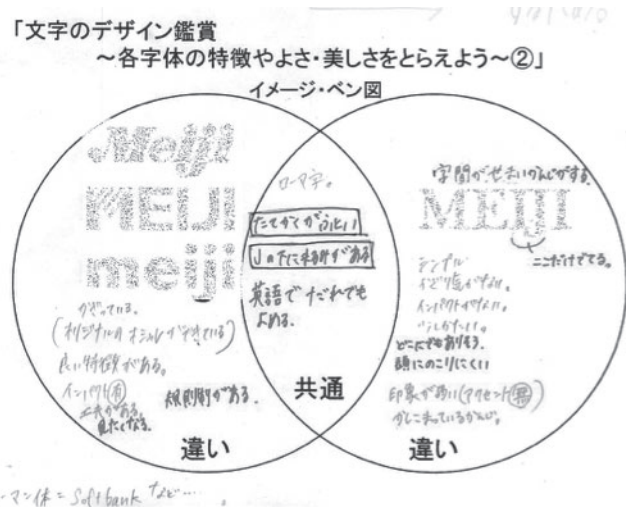 「文字のデザイン鑑賞
～各字体の特徴やよさ・美しさをとらえよう～②」
イメージ・ベン図
Meiji
MEIJI
meiji
かざっている。
(オリジナルのオシャレができている)
良い特徴がある。
インパクト有
工夫がある。
見たくなる。
規則制がある。
違い
ローマ字。
たてがてがふとい
Jの下に来るがある
英語でだれでも
よめる。
共通
字間がせまいかんじがする。
MEIJI
ここだけでてる。
シンプル
かざり気がない。
インパクトがない。
どこにでもありそう。
頭にのこりにくい
印象が弱い(アクセント無)
かしこまっているかんじ。
違い
ーマン体=Softbank など…